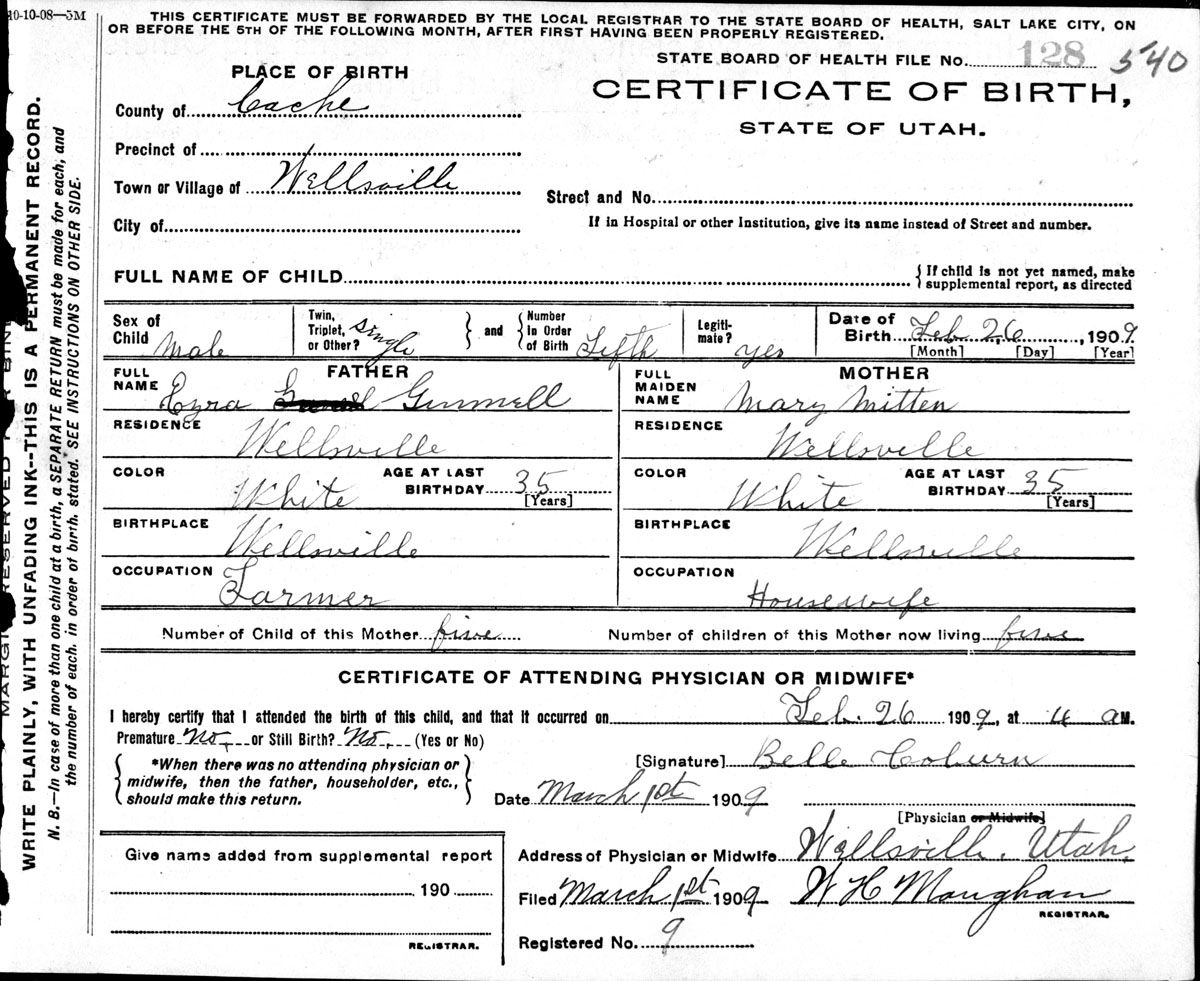 10-10-08—3M
THIS CERTIFICATE MUST BE FORWARDED BY THE LOCAL REGISTRAR TO THE STATE BOARD OF HEALTH, SALT LAKE CITY, ON
OR BEFORE THE 5TH OF THE FOLLOWING MONTH, AFTER FIRST HAVING BEEN PROPERLY REGISTERED.
STATE BOARD OF HEALTH FILE No. 128 540
PLACE OF BIRTH
CERTIFICATE OF BIRTH,
STATE OF UTAH.
County of Cache
Precinct of
Town or Village of Wellsville
Street and No.
City of
If in Hospital or other Institution, give its name instead of Street and number.
FULL NAME OF CHILD
{ If child is not yet named, make
supplemental report, as directed
Sex of Child Male
Twin, Triplet, or Other? Single } and { Number In Order of Birth Fifth
Legiti-mate? yes
Date of Birth Feb. 26, 1909
[Month] [Day] [Year]
FATHER
FULL NAME Ezra Gunnell
MOTHER
FULL MAIDEN NAME Mary Mitten
RESIDENCE Wellsville
RESIDENCE Wellsville
COLOR White AGE AT LAST BIRTHDAY 35 [Years]
COLOR White AGE AT LAST BIRTHDAY 35 [Years]
BIRTHPLACE Wellsville
BIRTHPLACE Wellsville
OCCUPATION Farmer
OCCUPATION Housewife
Number of Child of this Mother five Number of children of this Mother now living five
CERTIFICATE OF ATTENDING PHYSICIAN OR MIDWIFE*
I hereby certify that I attended the birth of this child, and that it occurred on Feb. 26 1909, at 4 a M.
Premature No, or Still Birth? No, (Yes or No)
{ *When there was no attending physician or
midwife, then the father, householder, etc.,
should make this return. }
[Signature] Belle Coburn
Date March 1st 1909
[Physician or Midwife]
Address of Physician or Midwife Wellsville, Utah.
Filed March 1st 1909 W H Maughan
REGISTRAR.
Registered No. 9
Give name added from supplemental report
190
REGISTRAR.
WRITE PLAINLY, WITH UNFADING INK--THIS IS A PERMANENT RECORD.
N. B.—In case of more than one child at a birth, a SEPARATE RETURN must be made for each, and
the number of each, in order of birth, stated. SEE INSTRUCTIONS ON OTHER SIDE.